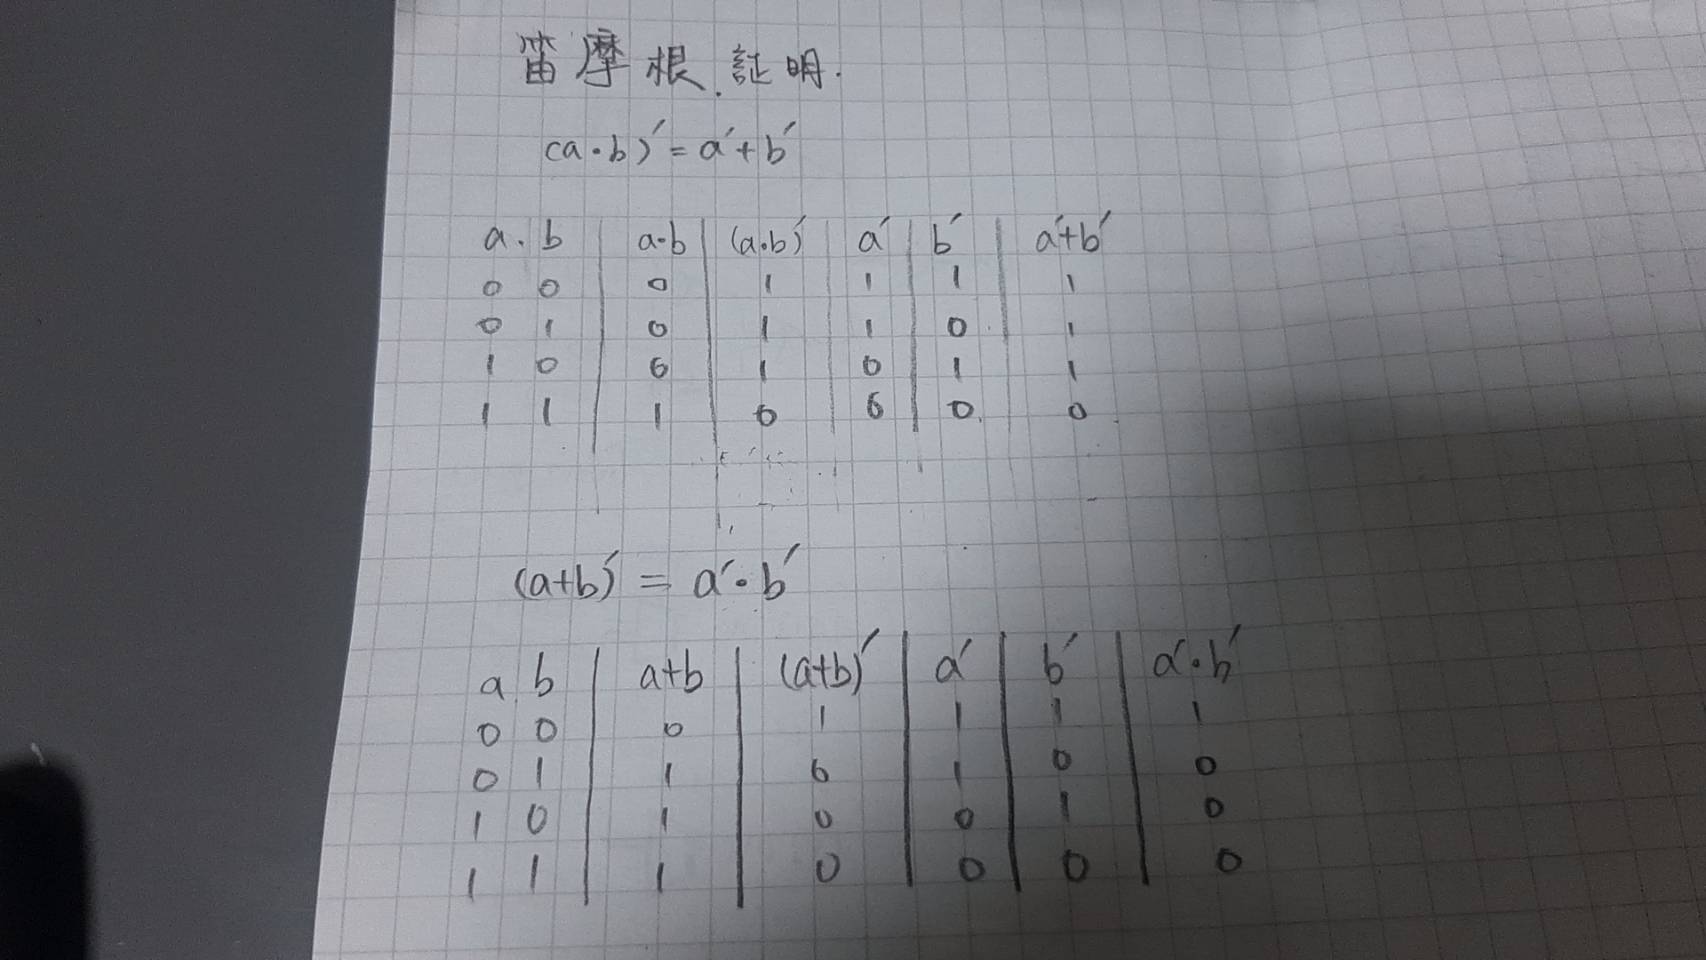 笛摩根.証明.
(a·b)′=a′+b′
a. b | a·b | (a·b)′ | a′ | b′ | a′+b′
0 0 | 0 | 1 | 1 | 1 | 1
0 1 | 0 | 1 | 1 | 0 | 1
1 0 | 0 | 1 | 0 | 1 | 1
1 1 | 1 | 0 | 0 | 0 | 0
(a+b)′ = a′·b′
a b | a+b | (a+b)′ | a′ | b′ | a′·b′
0 0 | 0 | 1 | 1 | 1 | 1
0 1 | 1 | 0 | 1 | 0 | 0
1 0 | 1 | 0 | 0 | 1 | 0
1 1 | 1 | 0 | 0 | 0 | 0